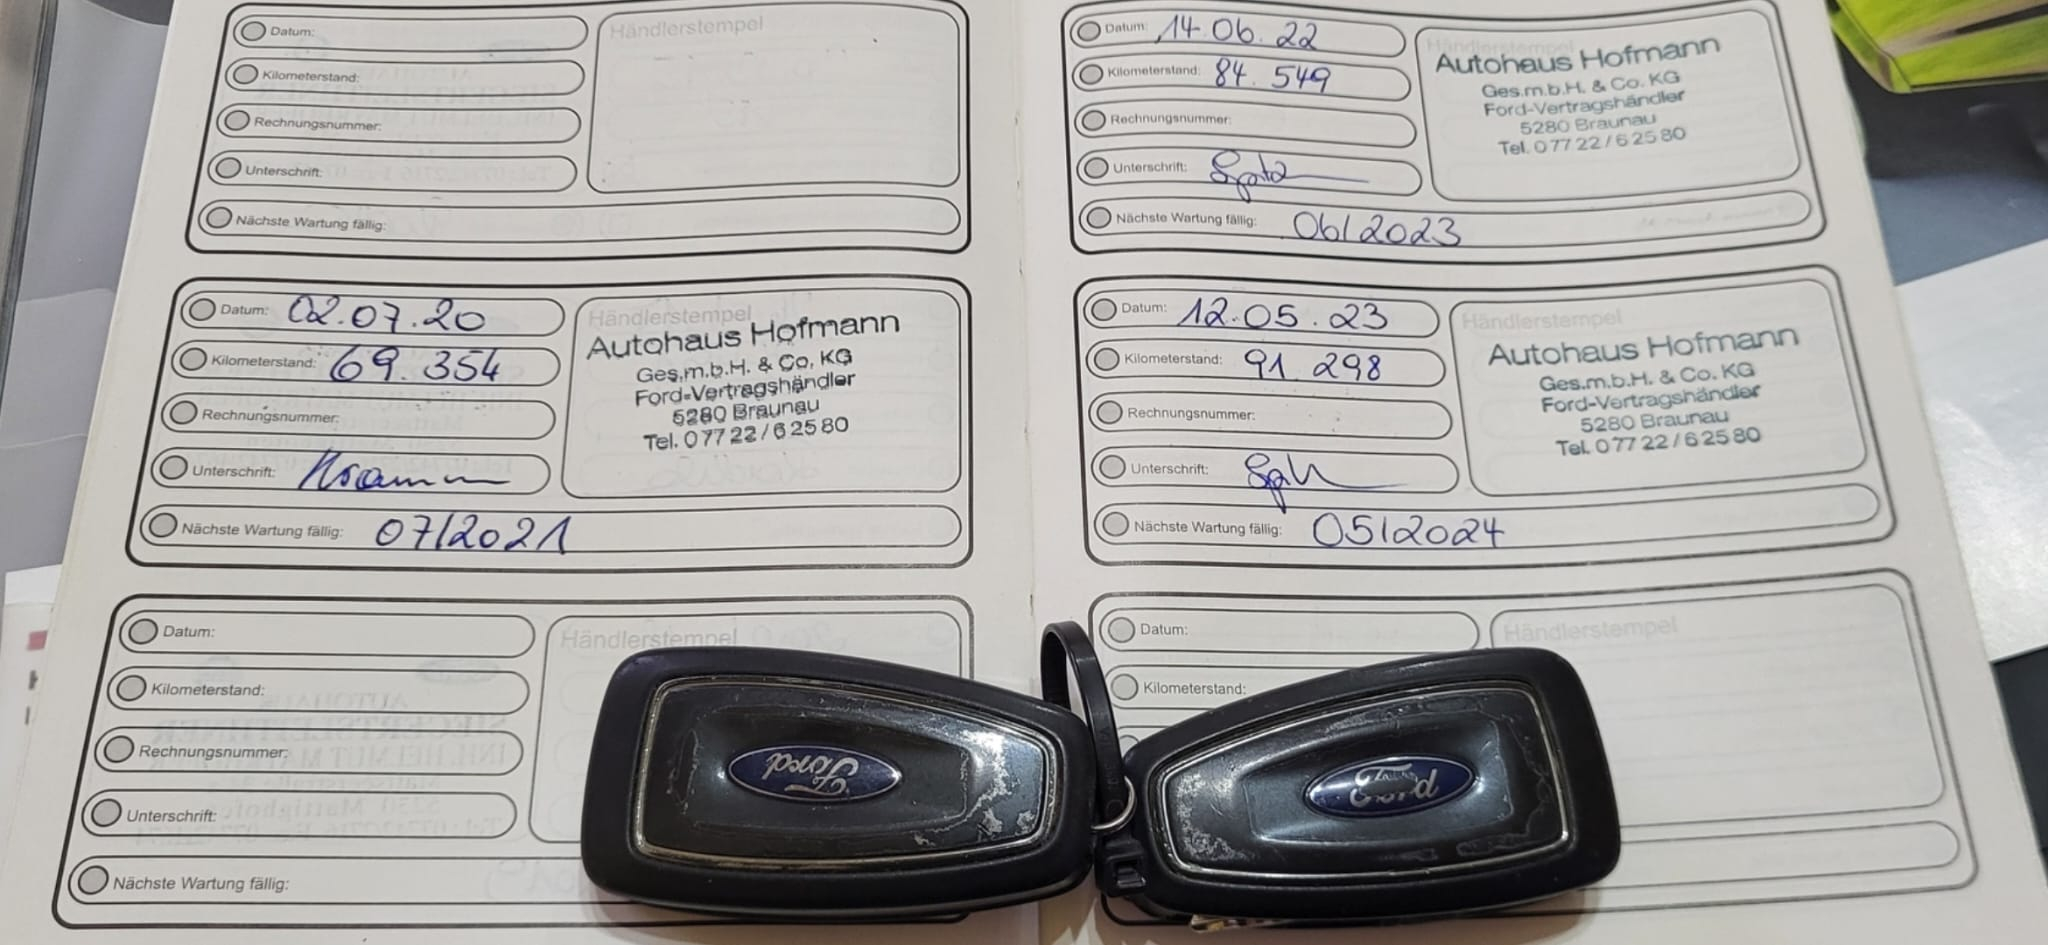 Datum:
Händlerstempel
Kilometerstand:
Rechnungsnummer:
Unterschrift:
Nächste Wartung fällig:
Datum: 02.07.20
Händlerstempel
Kilometerstand: 69.354
Rechnungsnummer:
Unterschrift:
Autohaus Hofmann
Ges.m.b.H. & Co. KG
Ford-Vertragshändler
5280 Braunau
Tel. 0 77 22 / 6 25 80
Nächste Wartung fällig: 07/2021
Datum:
Händlerstempel
Kilometerstand:
Rechnungsnummer:
Unterschrift:
Nächste Wartung fällig:
Datum: 14.06.22
Händlerstempel
Kilometerstand: 84.549
Rechnungsnummer:
Unterschrift:
Autohaus Hofmann
Ges.m.b.H. & Co. KG
Ford-Vertragshändler
5280 Braunau
Tel. 0 77 22 / 6 25 80
Nächste Wartung fällig: 06/2023
Datum: 12.05.23
Händlerstempel
Kilometerstand: 91 298
Rechnungsnummer:
Unterschrift:
Autohaus Hofmann
Ges.m.b.H. & Co. KG
Ford-Vertragshändler
5280 Braunau
Tel. 0 77 22 / 6 25 80
Nächste Wartung fällig: 05/2024
Datum:
Händlerstempel
Kilometerstand:
Ford
Ford